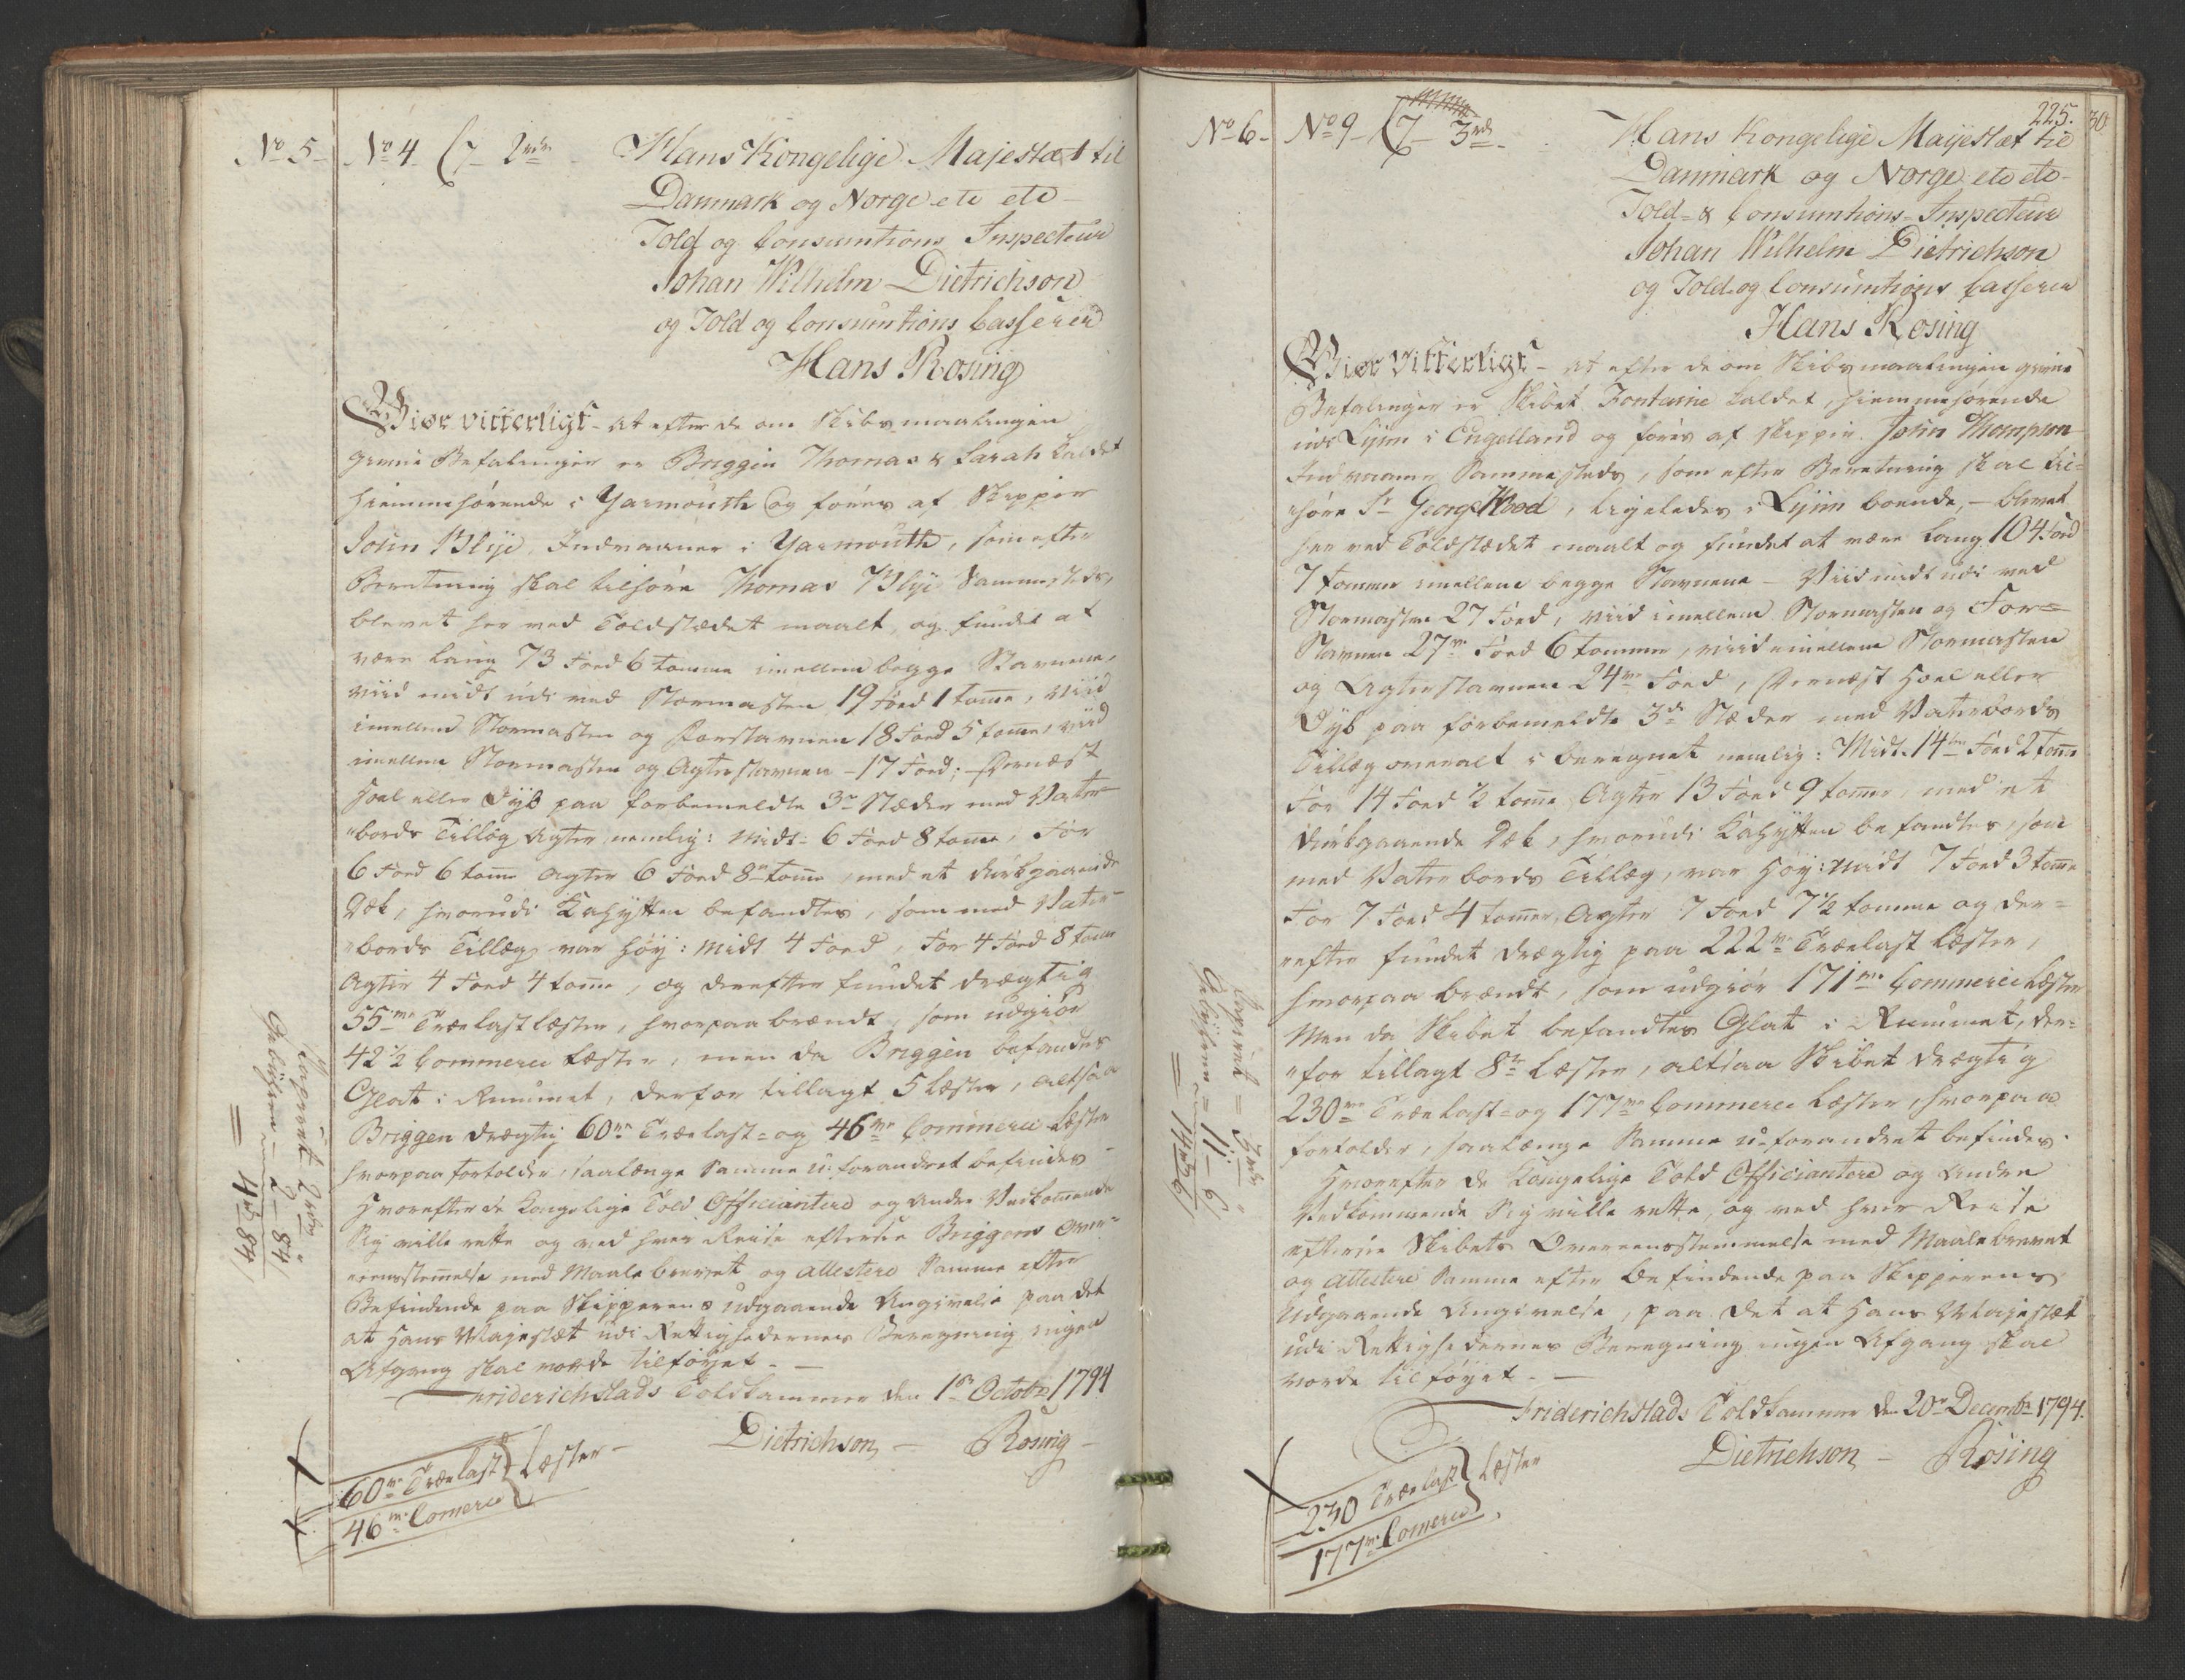 No 5 No 4 (7 2rdr
Hans Kongelige Majestæt til
Danmark og Norge etc etc
Told og Consumtions Inspecteur
Johan Wilhelm Dietrichson
og Told og Consumtions Casserer
Hans Rosing
Giør vitterligt - at efter de om Skibsmaalingen
givne Befalinger er Briggen Thomas & Sarah kaldet
hiemmehørende i Yarmouth og føres af Skipper
John Blye, Indvaaner i Yarmouth, som efter
Beretning skal tilhøre Thomas Blye Sammesteds,
blevet her ved Toldstædet maalt, og fundet at
være Lang 73 Foed 6 tomme imellem begge Stavnene,
viid midt udi ved Stormasten 19 Foed 1 tome, viid
imellem Stormasten og Forstavnen 18 Foed 5 tome, viid
imellem Stormasten og Agterstavnen - 17 Foed; Dernæst
Hoel eller Dyb paa forbemeldte 3de Stæder med Vater-
"bords Tillæg Agter, nemlig: Midt 6 Foed 8 tome, For
6 Foed 6 tome Agter 6 Foed 8 tome, med et Durkgaaende
Dæk, hvorudi Kahytten befandtes, som med Vater-
"bords Tillæg var høy: Midt 4 Foed, For 4 Foed 8 tome
Agter 4 Foed 4 tome, og derefter fundet drægtig
55me Trælastlæster, hvorpaa brændt, som udgiør
42 1/2 Commerce Læster, men da Briggen befandtes
Glat i Rummet, derfor tillagt 5 Læster, altsaa
Briggen drægtig 60me Trælast= og 46me Commerce Læster
hvorpaa fortolder, saalænge Samme u-forandret befindes
Hvorefter de Kongelige Told Officiantere og andre Vedkomende
Sig ville rette og ved hver Reise efterse Briggens Over-
eensstemelse med Maalebrevet og attestere Samme efter
Befindende paa Skipperens udgaaende Angivelse paa det
at Hans Majestæt udi Rettighedernes Beregning ingen
Afgang skal vorde tilføyet. -
Friderichstads Toldkammer den 1ste Octobr 1794
Dietrichson - Rosing -
60me Trælast } Læster -
46me Comerce
Papiret 2rdr
Gebyhren - 2 - 84
= 4rd 84
225.
30
No 6 - No 9 - (7 3rd
Hans Kongelige Mayestæt til
Danmark og Norge etc etc -
Told- & Consumtions-Inspecteur
Johan Wilhelm Dietrichson
og Told og Consumtions Casserer
Hans Rosing
Giør Vitterligt - at efter de om Skibsmaalingen givne
Befalinger er Skibet Fontaine kaldet, hiemmehørende
udi Lynn i Engelland og føres af Skipper John Thompson
Indvaaner Sammesteds, som efter Beretning skal til-
høre Sr George Hood, ligeledes i Lynn boende, - blevet
her ved Toldstædet maalt og fundet at være Lang 104 Foed
7 tomme imellem begge Stavnene - Viid midt udi ved
Stormasten 27 Foed, viid imellem Stormasten og For-
Stavnen 27me Foed 6 tomme, viid imellem Stormasten
og Agterstavnen 24me Foed, Dernæst Hoel eller
Dyb paa forbemeldte 3de Stæder med Vaterbords
Tillæg overalt i beregnet nemlig: Midt 14 Foed 2 tome
For 14 Foed 1/2 tome, Agter 13 Foed 9 tomer, med et
Durkgaaende Dæk, hvorudi Kahytten befandtes, som
med Vaterbords Tillæg, var høy: Midt 7 Foed 3 tome
For 7 Foed 4 tomer, Agter 7 Foed 7 1/2 tomme og der-
"efter fundet drægtig paa 222me Trælast Læster,
hvorpaa brændt, som udgiør 171me Commerce Læster
Men da Skibet befandtes Glat i Rummet, der-
"for tillagt 8te Læster, altsaa Skibet drægtig
230me Trælast= og 177me Commerce Læster, hvorpaa
fortolder, saalænge Samme u-forandret befindes.
Hvorefter de Kongelige Told Officiantere og Andre
Vedkommende Sig ville rette, og ved hver Reise
efterse Skibets Overeensstemmelse med Maalebrevet
og attestere Samme efter befindende paa Skipperens
Udgaaende Angivelse, paa det at Hans Majestæt
udi Rettighedernes Beregning ingen Afgang skal
vorde tilføyet. -
Friderichstads Toldkammer den 20de Decembr 1794.
Dietrichson - Rosing
230 Trælast } Læster
177me Comerce
Papiret = 3rdr
Gebyhren = 11 - 6
= 14rd 6